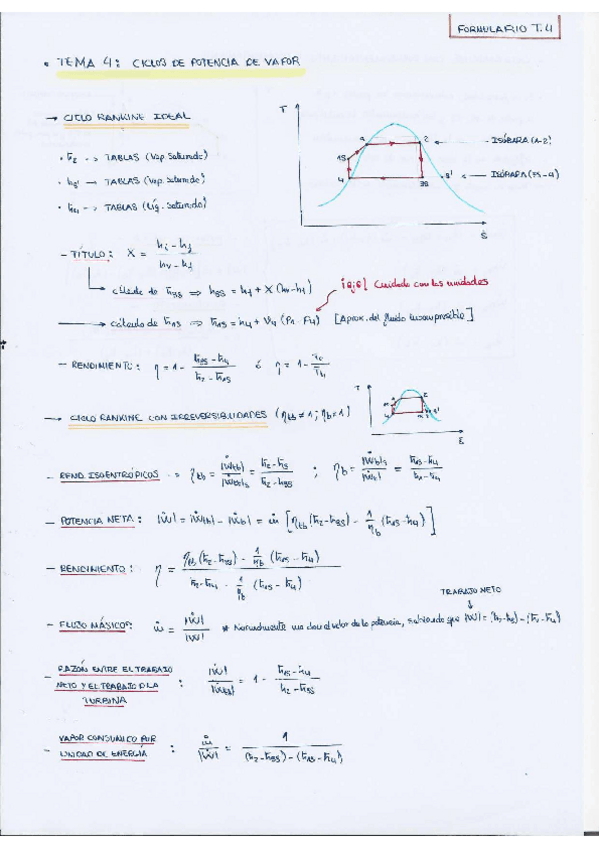 FORMULARIO T.4
• TEMA 4: CICLOS DE POTENCIA DE VAPOR
→ CICLO RANKINE IDEAL
• h̄2 --> TABLAS (Vap. Saturado)
• h3' → TABLAS (Vap. Saturado)
• h̄4 --> TABLAS (Líq. Saturado)
T
A
2
1S
4
3S
3'
S̄
← - ISÓBARA (1-2)
← ISÓBARA (3S-4)
- TÍTULO: X = (hi - hf) / (hv - hf)
cálculo de h̄3S ⇒ h3S = h4 + X (hv - h4)
¡ojo! Cuidado con las unidades
→ cálculo de h̄1S ⇒ h̄1S = h4 + V4 (P1 - P4) [Aprox. del fluido incompresible]
- RENDIMIENTO: η = 1 - (h̄3S - h̄4) / (h̄2 - h̄1S) ó η = 1 -
→ CICLO RANKINE CON IRREVERSIBILIDADES (ηtb ≠ 1; ηb ≠ 1)
T
S̄
- REND. ISOENTRÓPICOS → ηtb = |Ẇtb| / |Ẇtb|s = (h̄2 - h̄3) / (h̄2 - h3S) ; ηb = |Ẇb|s / |Ẇb| = (h̄1S - h̄4) / (h̄1 - h̄4)
- POTENCIA NETA: |Ẇ| = |Ẇtb| - |Ẇb| = ṁ [ηtb (h̄2 - h3S) - 1/ηb (h̄1S - h̄4)]
- RENDIMIENTO: η = (ηtb (h̄2 - h̄3S) - 1/ηb (h̄1S - h̄4)) / (h̄2 - h̄4 - 1/ηb (h̄1S - h̄4))
TRABAJO NETO
- FLUJO MÁSICO: ṁ = |Ẇ| / |W| * Normalmente me dan el valor de la potencia, sabiendo que |W| = (h̄2 - h̄3) - (h̄1 - h̄4)
- RAZÓN ENTRE EL TRABAJO
NETO Y EL TRABAJO D LA
TURBINA : |Ẇ| / |Ẇtb| = 1 - (h̄1S - h4) / (h2 - h3S)
- VAPOR CONSUMIDO POR
UNIDAD DE ENERGÍA : ṁ / |Ẇ| = 1 / ((h̄2 - h3S) - (h̄1S - h̄4))